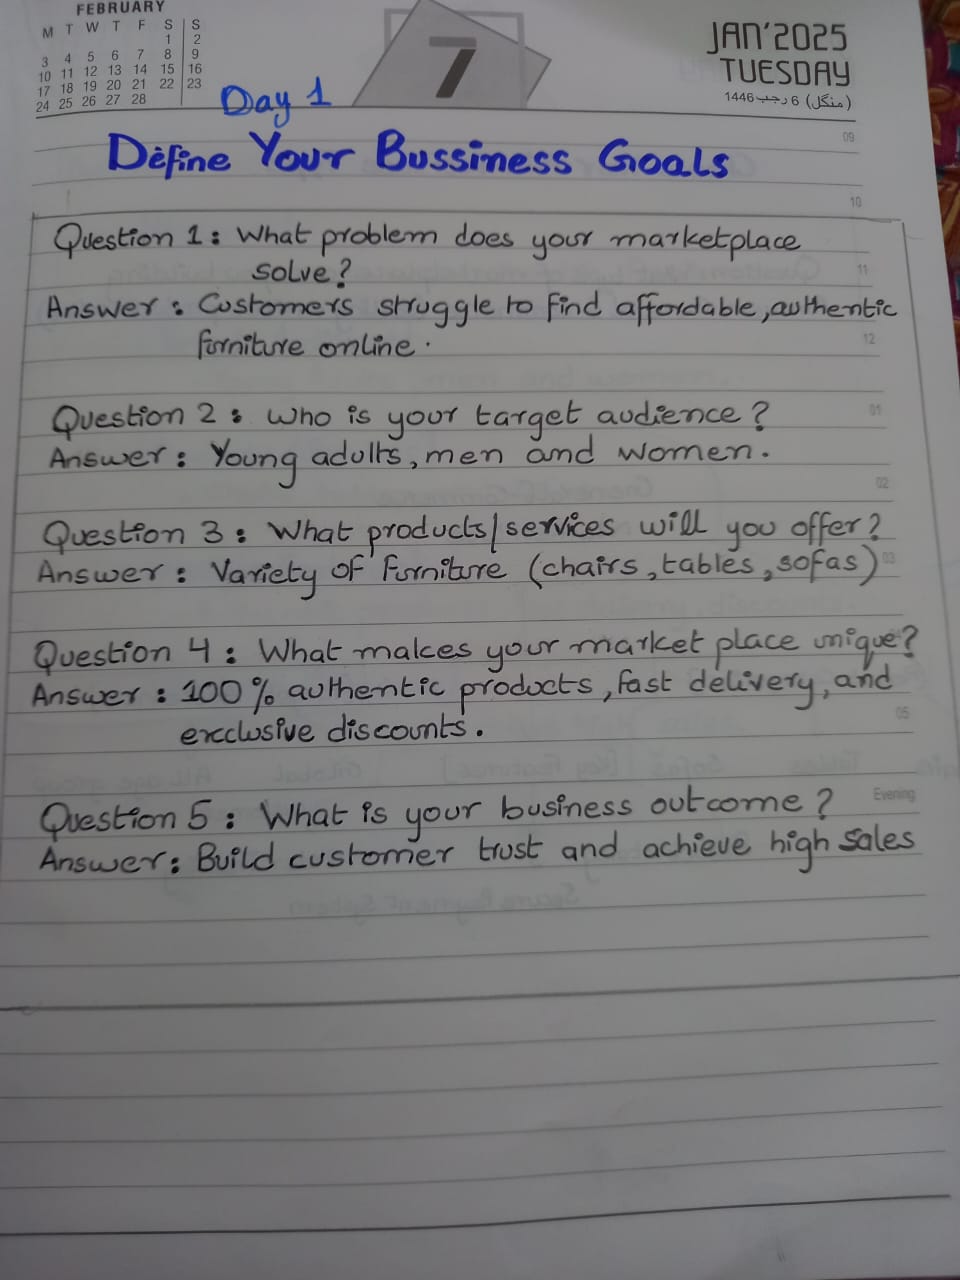 FEBRUARY
M T W T F S S
1 2
3 4 5 6 7 8 9
10 11 12 13 14 15 16
17 18 19 20 21 22 23
24 25 26 27 28
7
JAN'2025
TUESDAY
(منگل) 6 رجب 1446
Day 1
Define Your Bussiness Goals
09
10
Question 1: What problem does your marketplace
solve?
11
Answer: Customers struggle to find affordable, authentic
furniture online.
12
Question 2: Who is your target audience?
01
Answer: Young adults, men and women.
02
Question 3: What products/services will you offer?
Answer: Variety of furniture (chairs, tables, sofas)
03
Question 4: What makes your market place unique?
Answer: 100% authentic products, fast delivery, and
05
exclusive discounts.
Evening
Question 5: What is your business outcome?
Answer: Build customer trust and achieve high sales